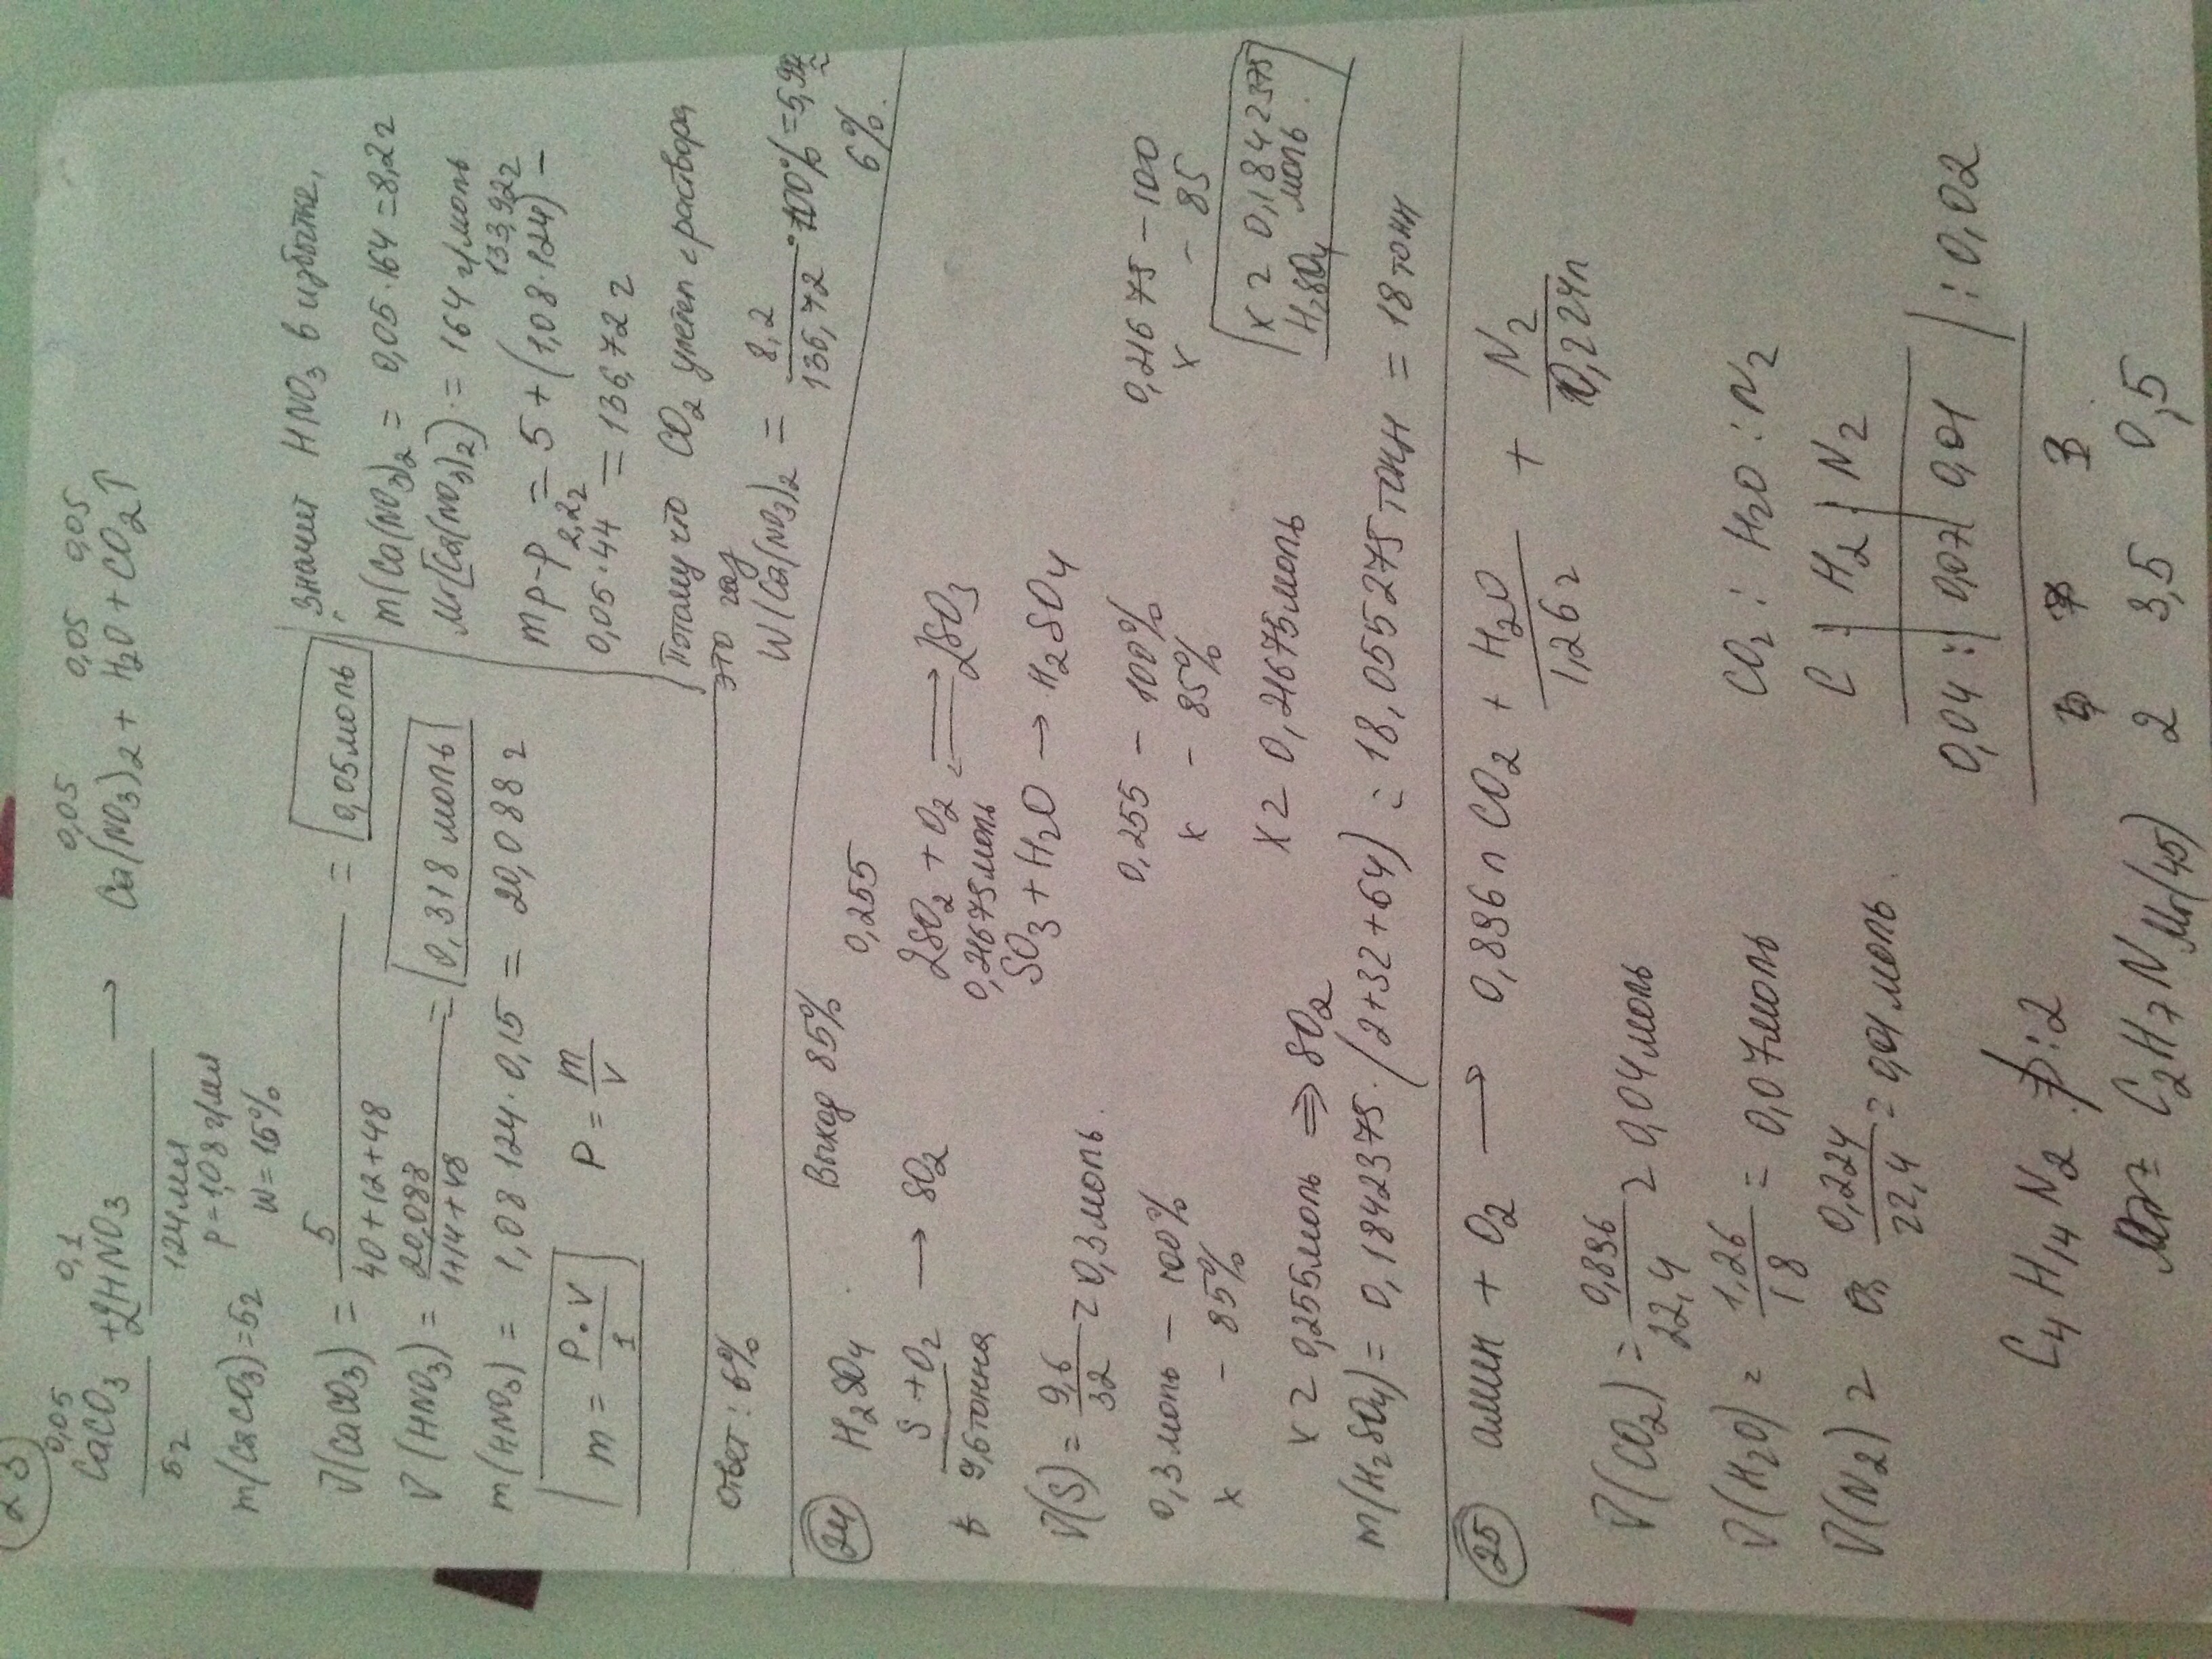 23
0,05 0,1 0,05 0,05 0,05
CaCO3 + 2HNO3 → Ca(NO3)2 + H2O + CO2↑
5г 124мл
P = 1,08 г/мл
W = 15%
m(CaCO3) = 5г
ν(CaCO3) = 5 / 40+12+48 = 0,05моль
ν(HNO3) = 20,088 / 1+14+48 = 0,318 моль
m(HNO3) = 1,08 · 124 · 0,15 = 20,088 г
m = P · V / 1 P = m / V
Значит HNO3 в избытке,
m(Ca(NO3)2 = 0,05 · 164 = 8,2г
Mr[Ca(NO3)2) = 164 г/моль
133,92г
mp-p = 5 + (1,08 · 124) –
2,2г
0,05 · 44 = 136,72 г
Потому что CO2 улетел с раствора
это газ
W(Ca(NO3)2 = 8,2 / 136,72 · 100% = 5,99
6%
ответ: 6%
24 H2SO4 Выход 85% 0,255
S + O2 → SO2 2SO2 + O2 ⇄ 2SO3
9,6тонна 0,21675моль
SO3 + H2O → H2SO4
ν(S) = 9,6 / 32 = 0,3моль
0,3моль – 100%
x – 85%
x = 0,255моль ⇒ SO2
0,255 – 100%
x – 85%
x = 0,21675моль
0,21675 – 100
x – 85
x = 0,1842375
H2SO4 моль
m(H2SO4) = 0,1842375 · (2+32+64) = 18,055275тонн = 18тонн
25 амин + O2 → 0,896л CO2 + H2O + N2
1,26г 0,224л
ν(CO2) = 0,896 / 22,4 = 0,04моль
ν(H2O) = 1,26 / 18 = 0,07моль
ν(N2) = 0,224 / 22,4 = 0,01моль
CO2 : H2O : N2
C : H2 N2
0,04 : 0,07 0,01 : 0,02
2 3,5 0,5
C4H14N2 : 2
C2H7N Mr(45)